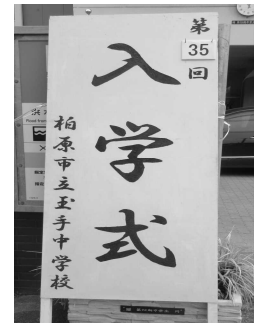 第35回
入学式
柏原市立玉手中学校